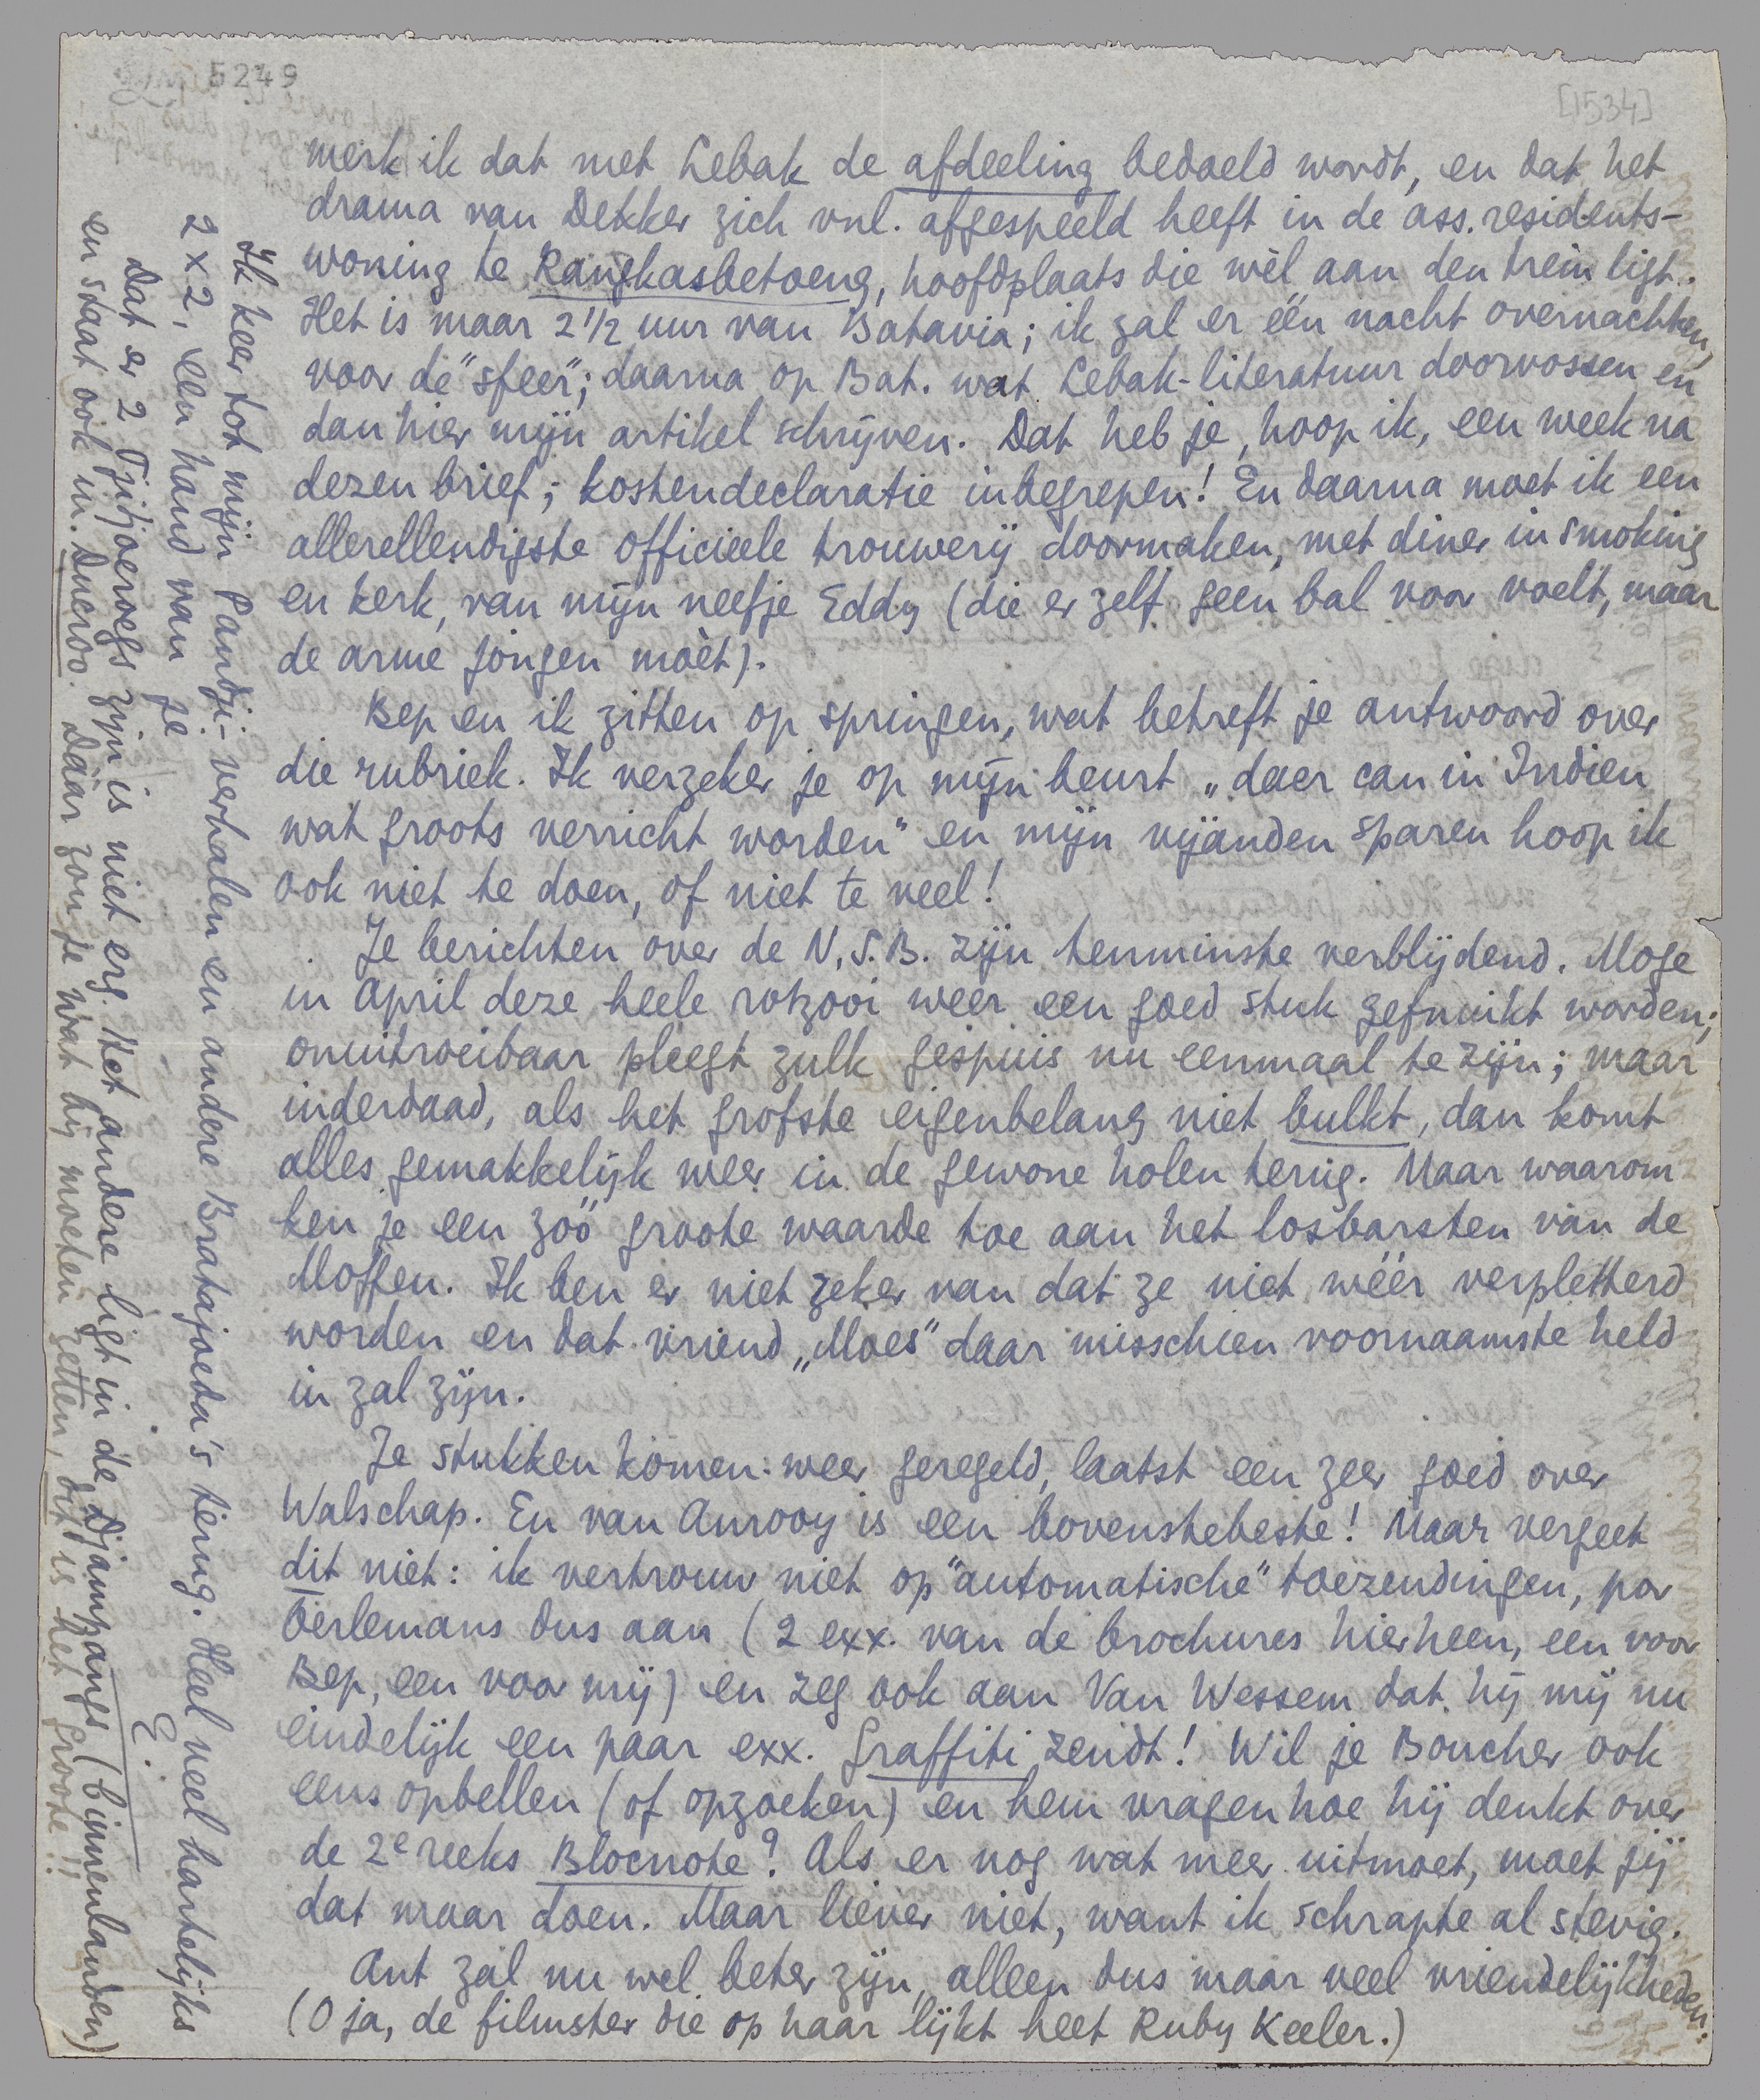 5249
[1534]
merk ik dat met Lebak de afdeeling bedoeld wordt, en dat het
drama van Dekker zich vnl. afgespeeld heeft in de ass. residents-
woning te Rangkasbetoeng, hoofdplaats die wèl aan den trein ligt.
Het is maar 2 1/2 uur van Batavia; ik zal er één nacht overnachten,
voor de "sfeer"; daarna op Bat. wat Lebak-literatuur doorvossen en
dan hier mijn artikel schrijven. Dat heb je, hoop ik, een week na
dezen brief; kostendeclaratie inbegrepen! En daarna moet ik een
allerellendigste officieele trouwerij doormaken, met diner in smoking
en kerk, van mijn neefje Eddy (die er zelf geen bal voor voelt, maar
de arme jongen moèt).
Bep en ik zitten op springen, wat betreft je antwoord over
die rubriek. Ik verzeker je op mijn beurt „daer can in Indien
wat groots verricht worden" en mijn vijanden sparen hoop ik
ook niet te doen, of niet te veel!
Je berichten over de N.S.B. zijn tenminste verblijdend. Moge
in April deze heele rotzooi weer een goed stuk gefnuikt worden;
onuitroeibaar pleegt zulk gespuis nu eenmaal te zijn; maar
inderdaad, als het grofste eigenbelang niet bulkt, dan komt
alles gemakkelijk weer in de gewone holen terug. Maar waarom
ken je een zóó groote waarde toe aan het losbarsten van de
Moffen. Ik ben er niet zeker van dat ze niet wéér verpletterd
worden en dat vriend „Moes" daar misschien voornaamste held
in zal zijn.
Je stukken komen weer geregeld, laatst een zeer goed over
Walschap. En van Anrooy is een bovenstebeste! Maar vergeet
dit niet: ik vertrouw niet op "automatische" toezendingen, por
Oerlemans dus aan (2 exx. van de brochures hierheen, een voor
Bep, een voor mij) en zeg ook aan Van Wessem dat hij mij nu
eindelijk een paar exx. Graffiti zendt! Wil je Boucher ook
eens opbellen (of opzoeken) en hem vragen hoe hij denkt over
de 2e reeks Blocnote? Als er nog wat meer uitmoet, moet jij
dat maar doen. Maar liever niet, want ik schrapte al stevig.
Ant zal nu wel beter zijn, alleen dus maar veel vriendelijkheden.
(O ja, de filmster die op haar lijkt heet Ruby Keeler.)
Ik keer tot mijn Pandji-verhalen en andere Bratajoeda's terug. Heel veel hartelijks
2 x 2, een hand van je
E.
Dat er 2 Tjitjoeroegs zijn is niet erg. Het andere ligt in de Djampangs (binnenlanden)
en staat ook in Ducroo. Dáár zou je wat bij moeten zetten, dit is het groote!!